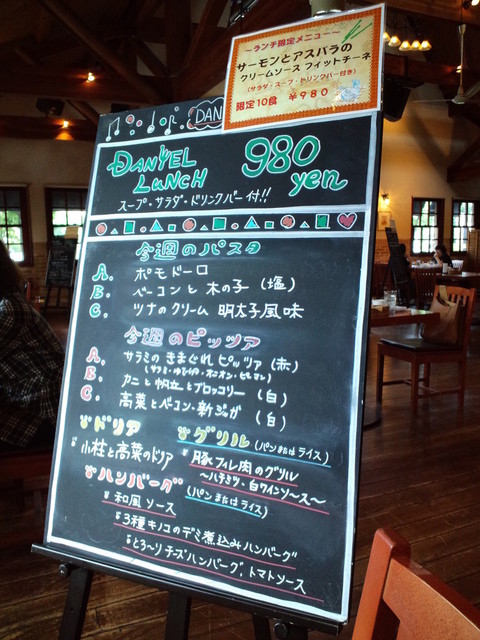 〜ランチ限定メニュー〜
サーモンとアスパラの
クリームソース フィットチーネ
(サラダ・スープ・ドリンクバー付き)
限定10食 ￥980
DAN
DANYEL
LUNCH
980
yen
スープ・サラダ・ドリンクバー付!!
今週のパスタ
A. ポモドーロ
B. ベーコンと木の子(塩)
C. ツナのクリーム 明太子風味
今週のピッツァ
A. サラミのきまぐれピッツァ(赤)
B. カニと帆立とブロッコリー(白)
C. 高菜とベーコン・新ジャガ(白)
ドリア
小柱と高菜のドリア
グリル(パンまたはライス)
豚フィレ肉のグリル
〜ハチミツ・白ワインソース〜
ハンバーグ(パンまたはライス)
和風ソース
3種キノコのデミ煮込みハンバーグ
とろ〜りチーズハンバーグ,トマトソース